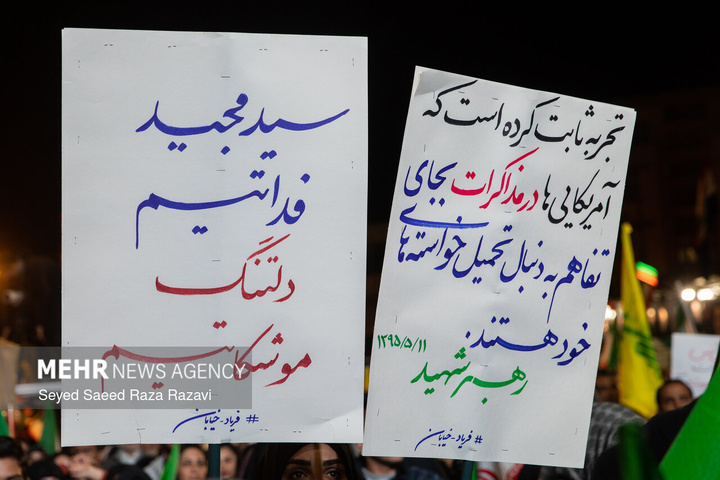 سید مجید
فداتیم
دلتنگ
موشکاتیم
#فریاد_خیابان
تجربه ثابت کرده است که
آمریکایی ها در مذاکرات بجای
تفاهم به دنبال تحمیل خواسته ها
خود هستند.
۱۳۹۵/۵/۱۱
رهبر شهید
#فریاد_خیابان
MEHR NEWS AGENCY
Seyed Saeed Raza Razavi